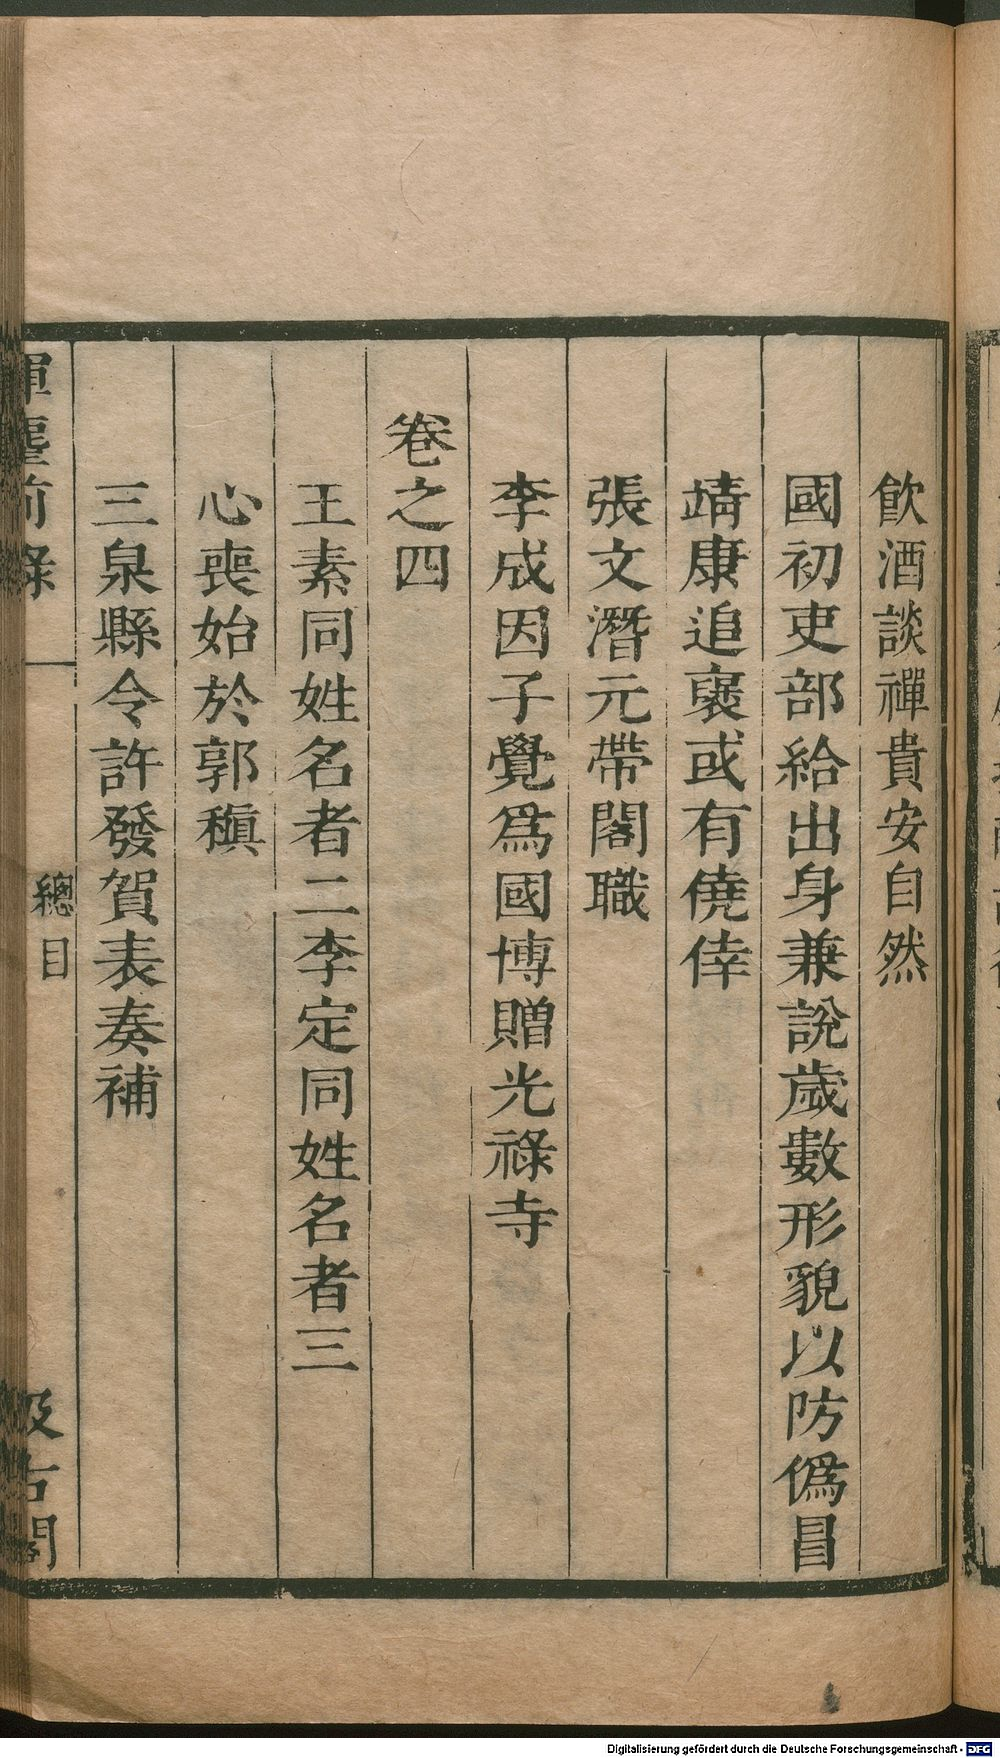 飲酒談禪貴安自然
國初吏部給出身兼說歲數形貌以防僞冒
靖康追襃或有僥倖
張文潛元帶閣職
李成因子覺爲國博贈光祿寺
卷之四
王素同姓名者二李定同姓名者三
心喪始於郭稹
三泉縣令許發賀表奏補
揮麈前錄
總目
汲古閣
Digitalisierung gefördert durch die Deutsche Forschungsgemeinschaft - DFG